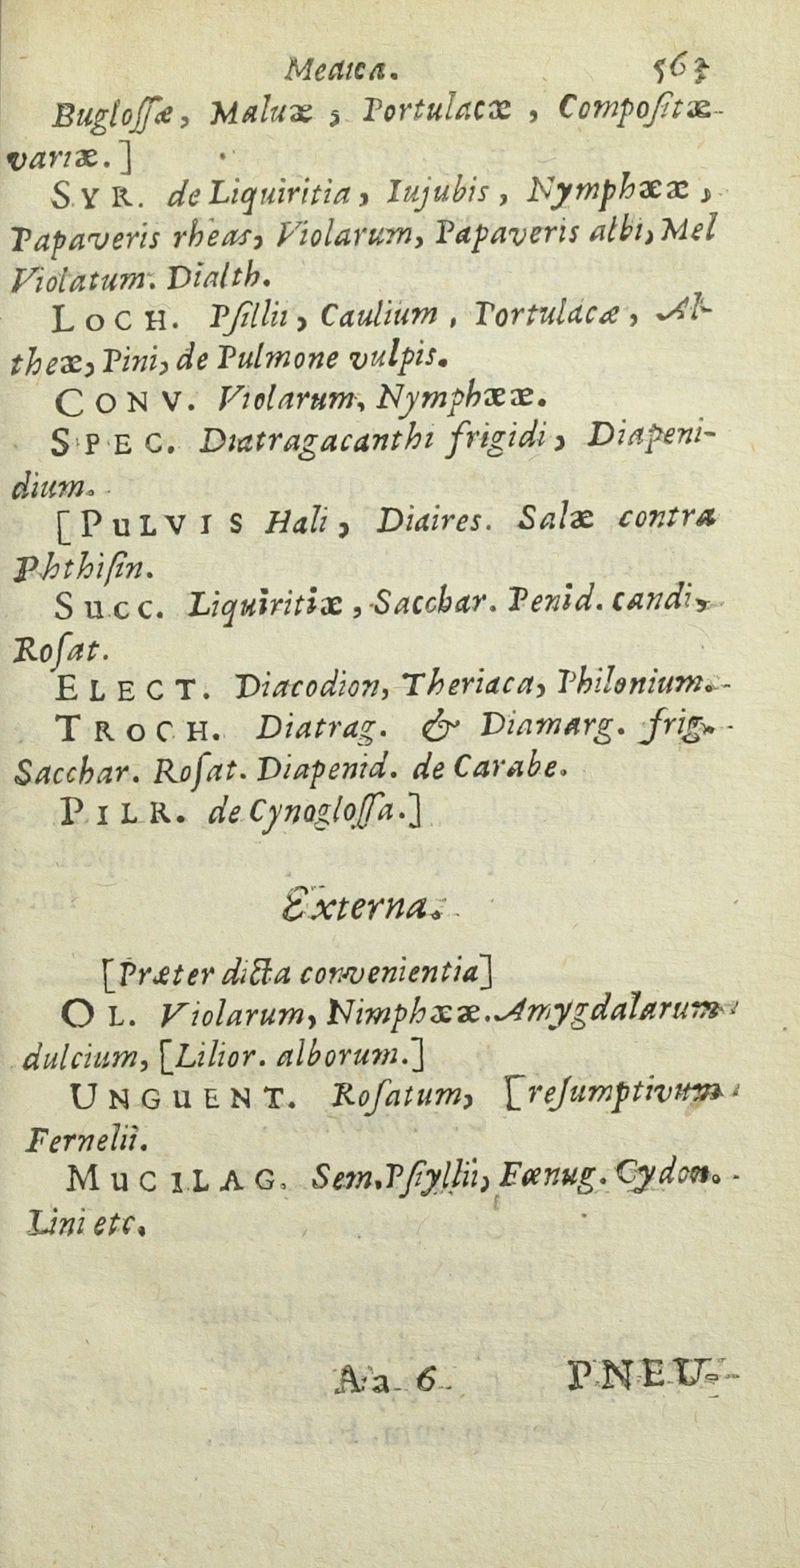 Medica. 563
Bugloſſæ, Maluæ, Portulacæ, Compoſitæ
variæ.]
SYR. de Liquiritia, Iujubis, Nymphææ,
Papaveris rheas, Violarum, Papaveris albi, Mel
Violatum. Dialth.
LOCH. Pſillii, Caulium, Portulacæ, Al-
theæ, Pini, de Pulmone vulpis.
CONV. Violarum, Nymphææ.
SPEC. Diatragacanthi frigidi, Diapeni-
dium.
[PULVIS Hali, Diaires. Salæ contra
Phthiſin.
SUCC. Liquiritiæ, Sacchar. Penid. candi,
Roſat.
ELECT. Diacodion, Theriaca, Philonium.
TROCH. Diatrag. & Diamarg. frig.
Sacchar. Roſat. Diapenid. de Carabe.
PILR. de Cynogloſſa.]
Externa.
[Præter dicta convenientia]
OL. Violarum, Nimphææ. Amygdalarum
dulcium, [Lilior. alborum.]
UNGUENT. Roſatum, [reſumptivum
Fernelii.
MUCILAG. Sem. Pſyllii, Fœnug. Cydon.
Lini etc.
Aa 6 PNEU-